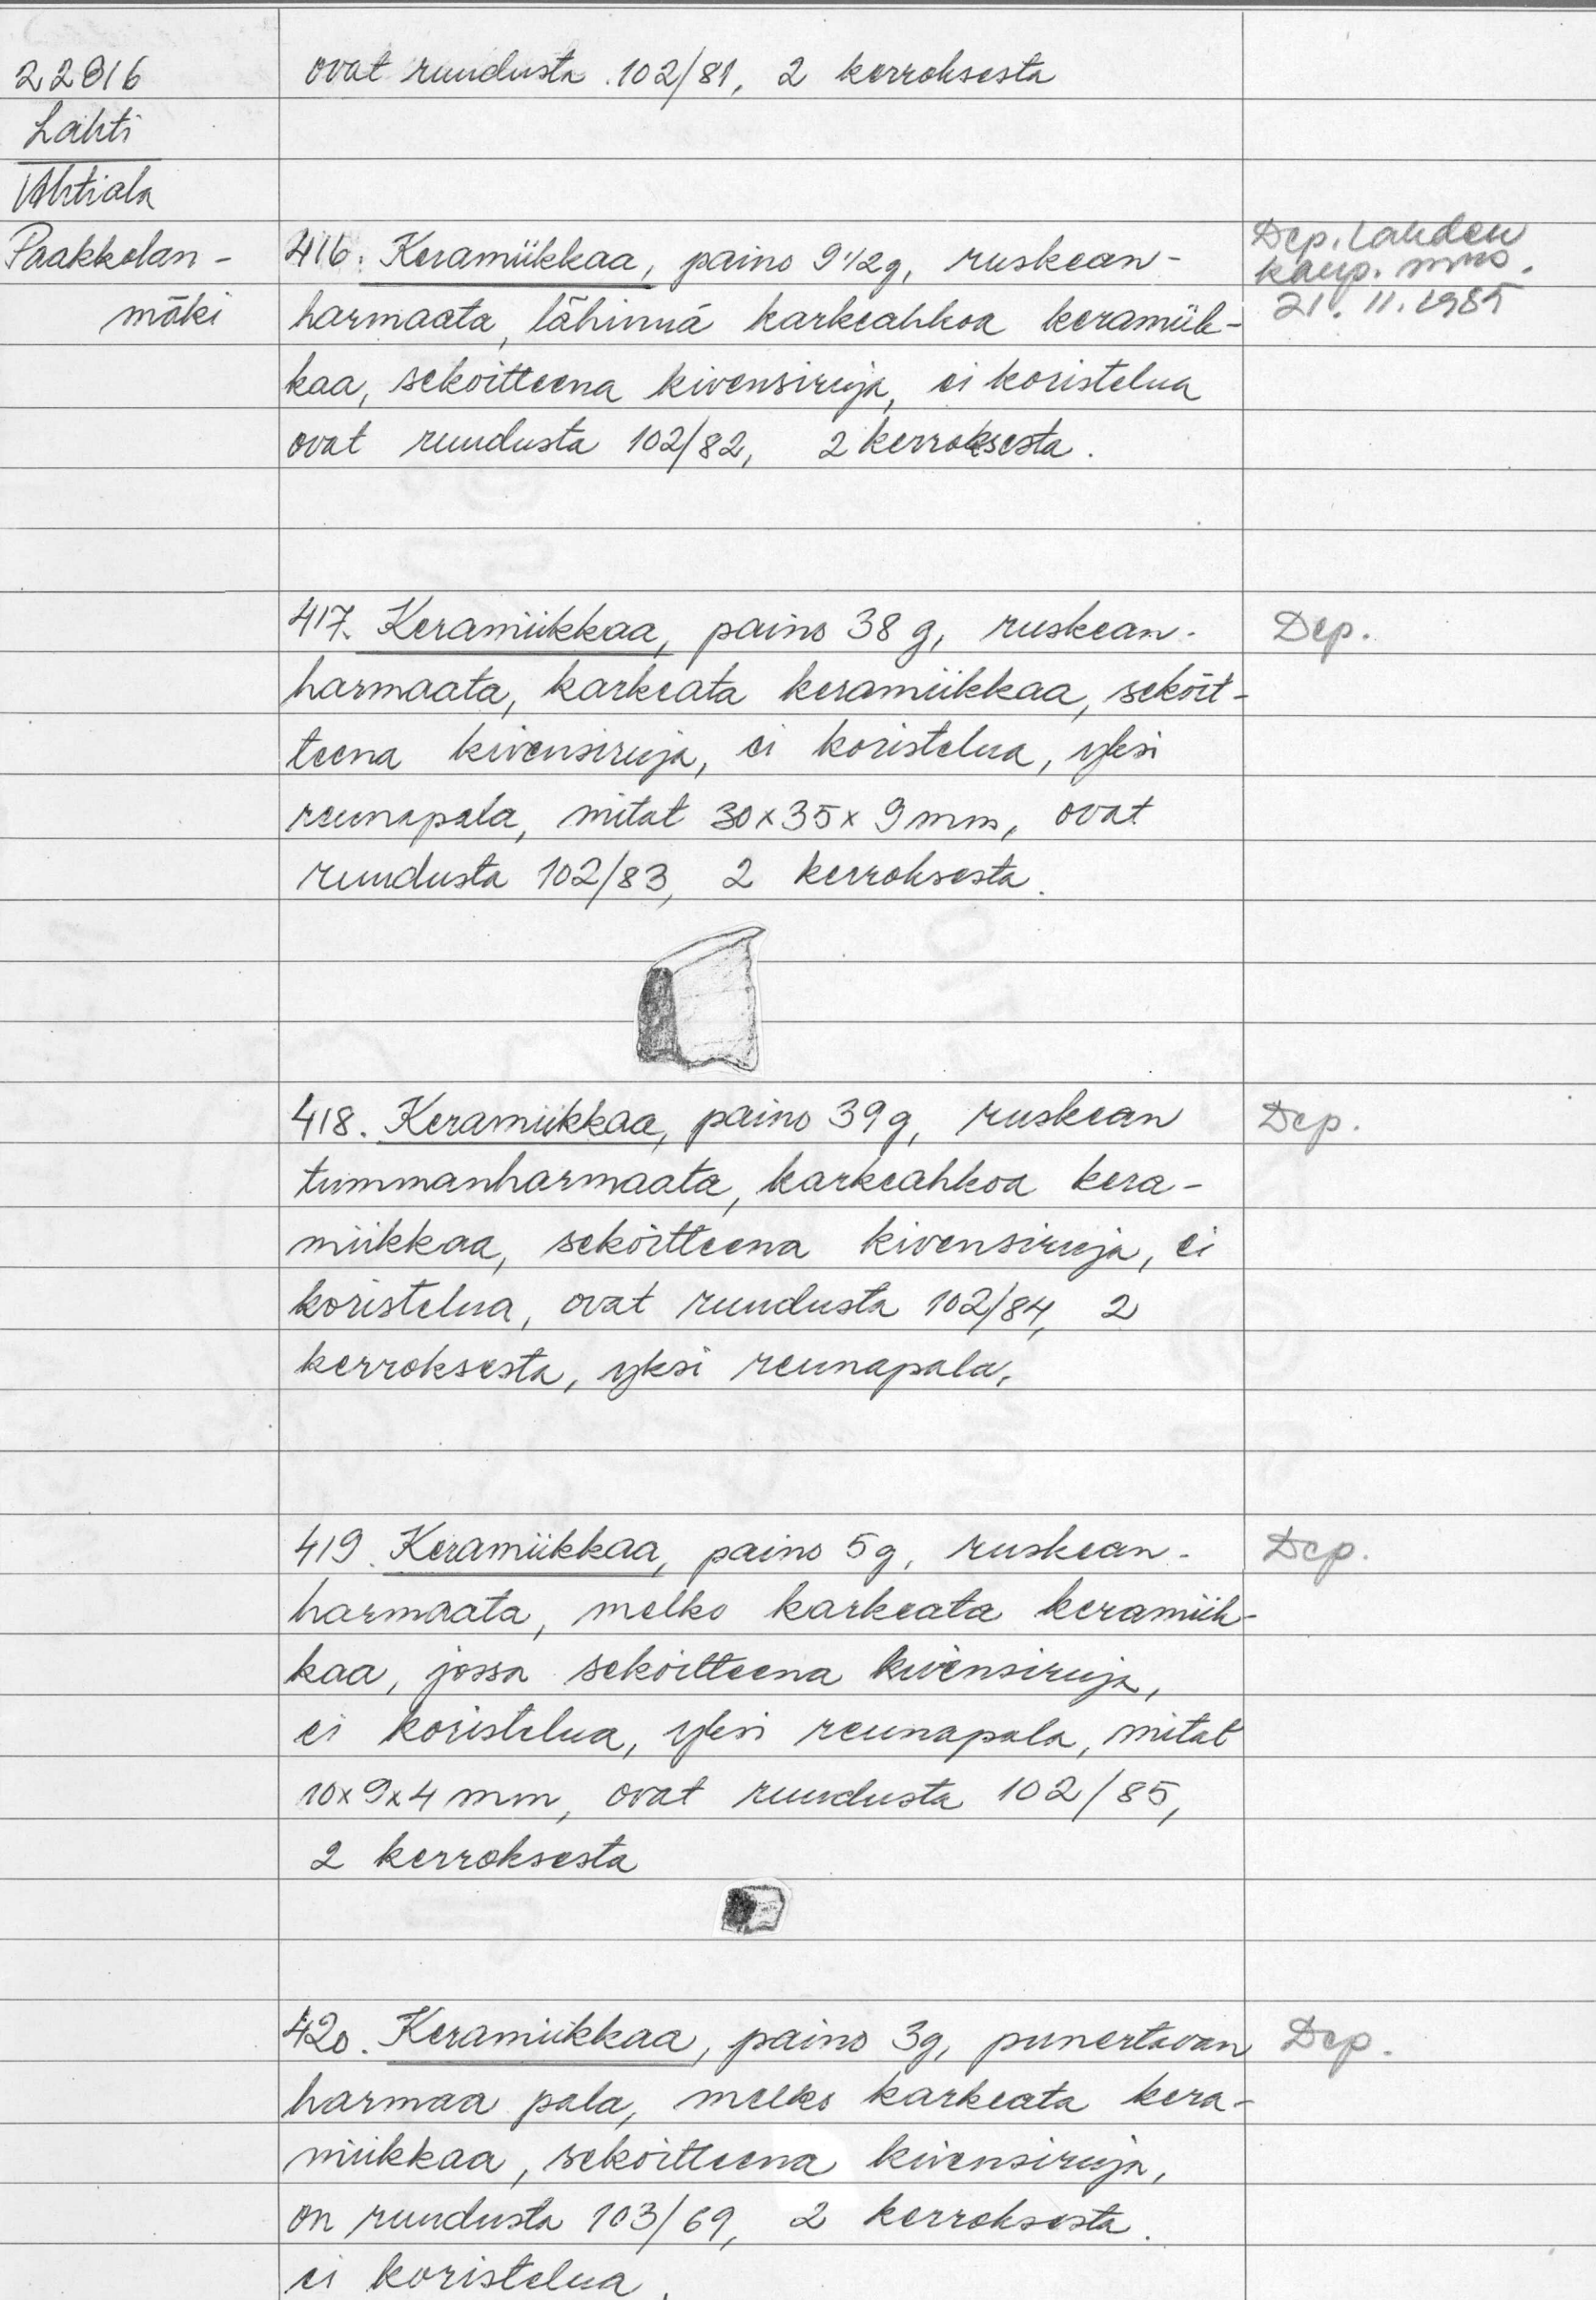 22816
Lahti
Ahtiala
Paakkolan-
mäki
ovat ruudusta 102/81, 2 kerroksesta
416. Keramiikkaa, paino 9 1/2 g, ruskean-
harmaata, lähinnä karkeahkoa keramiik-
kaa, sekoitteena kivensiruja, ei koristelua
ovat ruudusta 102/82, 2 kerroksesta.
Dep. Lahden
kaup. mus.
21. 11. 1985
417. Keramiikkaa, paino 38 g, ruskean-
harmaata, karkeata keramiikkaa, sekoit-
teena kivensiruja, ei koristelua, yksi
reunapala, mitat 30x35x9 mm, ovat
ruudusta 102/83, 2 kerroksesta.
Dep.
418. Keramiikkaa, paino 39 g, ruskean
tummanharmaata, karkeahkoa kera-
miikkaa, sekoitteena kivensiruja, ei
koristelua, ovat ruudusta 102/84, 2
kerroksesta, yksi reunapala.
Dep.
419. Keramiikkaa, paino 5 g, ruskean-
harmaata, melko karkeata keramiik-
kaa, jossa sekoitteena kivensiruja,
ei koristelua, yksi reunapala, mitat
10x9x4 mm, ovat ruudusta 102/85,
2 kerroksesta
Dep.
420. Keramiikkaa, paino 3g, punertavan
harmaa pala, melko karkeata kera-
miikkaa, sekoitteena kivensiruja,
on ruudusta 103/69, 2 kerroksesta.
ei koristelua.
Dep.